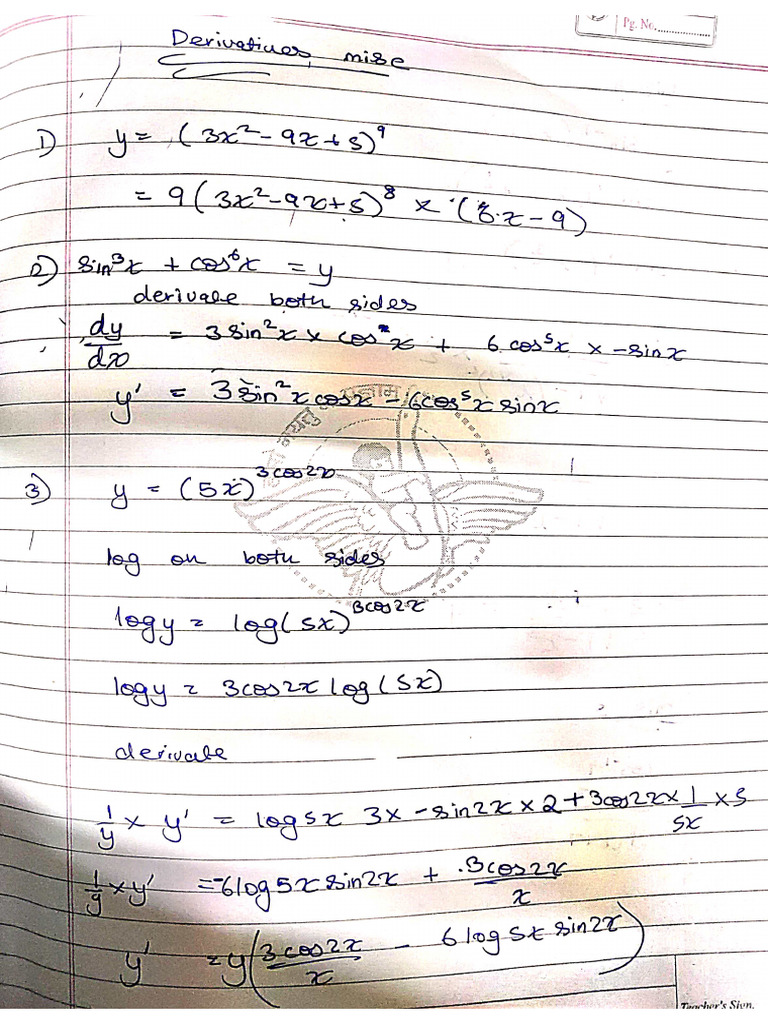 Pg. No.
Derivatives, mise
1) y = (3x²-9x+5)⁹
= 9(3x²-9x+5)⁸ × (6x-9)
2) sin³x + cos⁶x = y
derivate both sides
dy/dx = 3 sin²x × cosx + 6 cos⁵x × -sinx
y' = 3 sin²x cosx - 6cos⁵x sinx
3) y = (5x)^3cos2x
log on both sides
logy = log(5x)^3cos2x
logy = 3cos2x log(5x)
derivate
1/y × y' = log5x 3x -sin2x × 2 + 3cos2x × 1/5x × 5
1/y × y' = -6log5x sin2x + 3cos2x/x
y' = y(3cos2x/x - 6log5x sin2x)
Teacher's Sign.